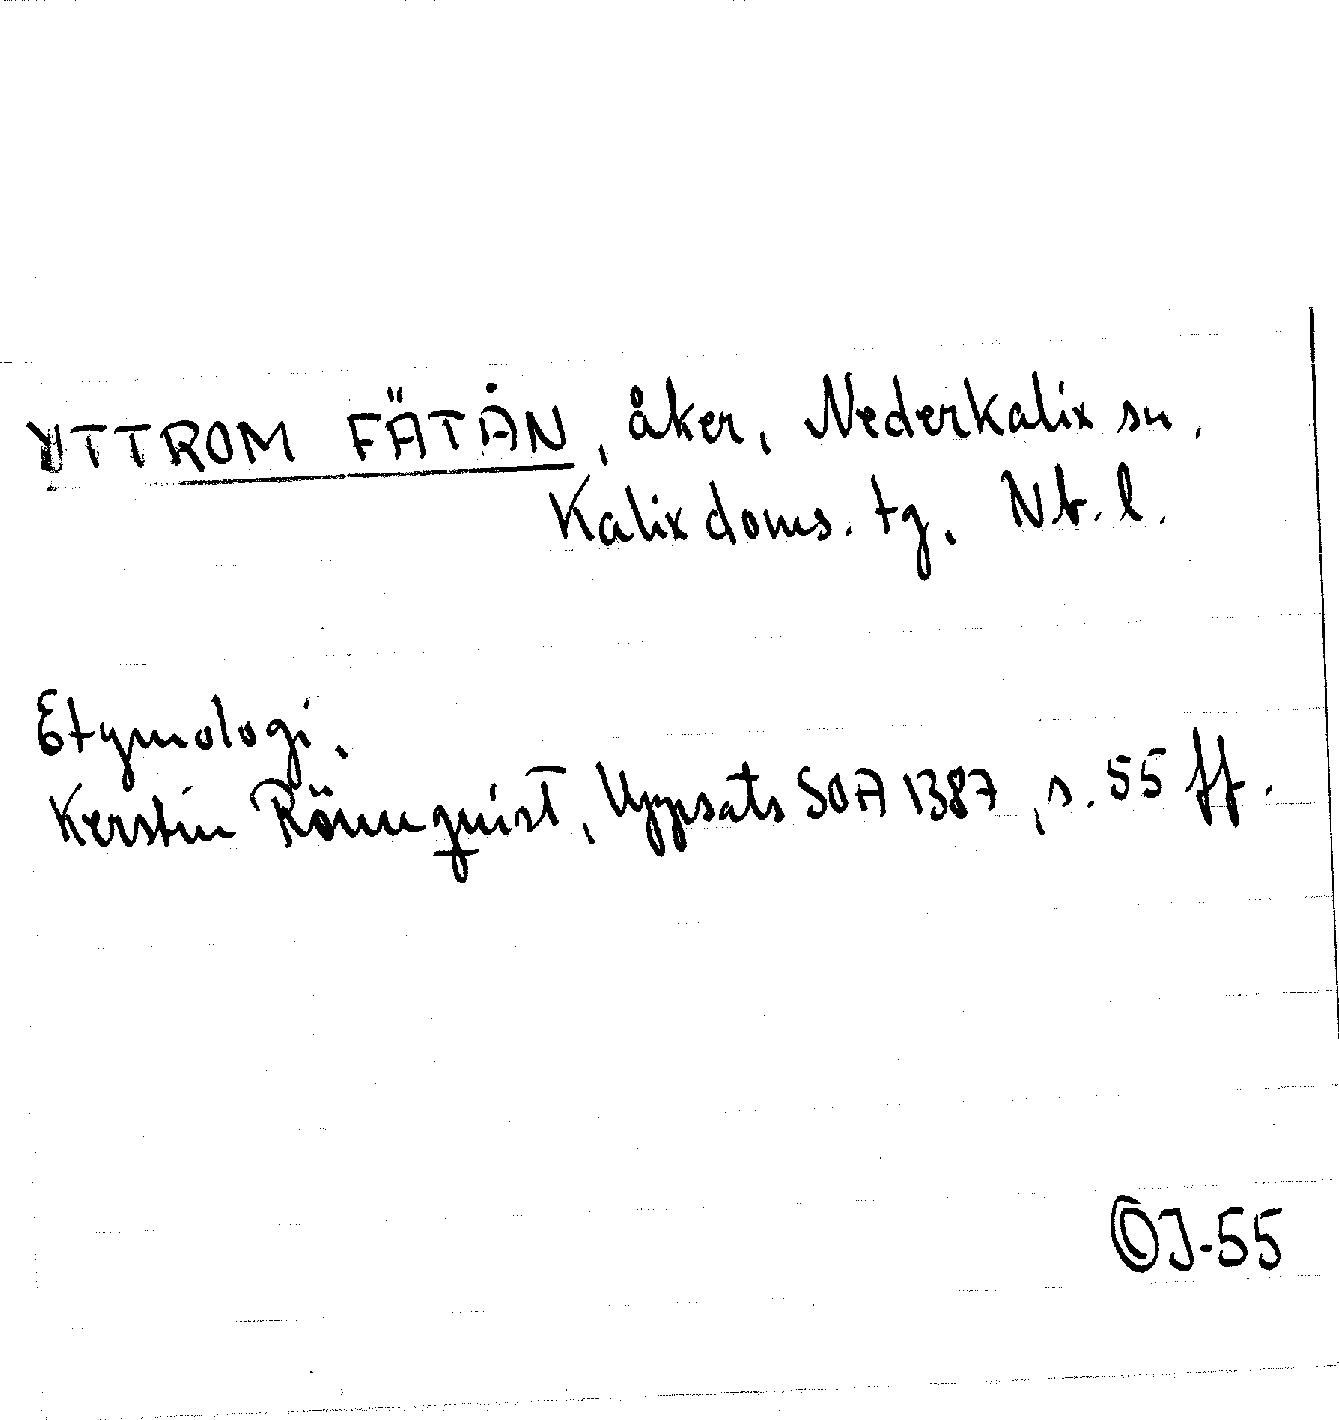 YTTROM FÄTÅN, åker, Nederkalix sn.
Kalix doms. tg. Nb. l.
Etymologi.
Kerstin Rönnquist, Uppsats SOA 1387, s. 55 ff.
©J-55